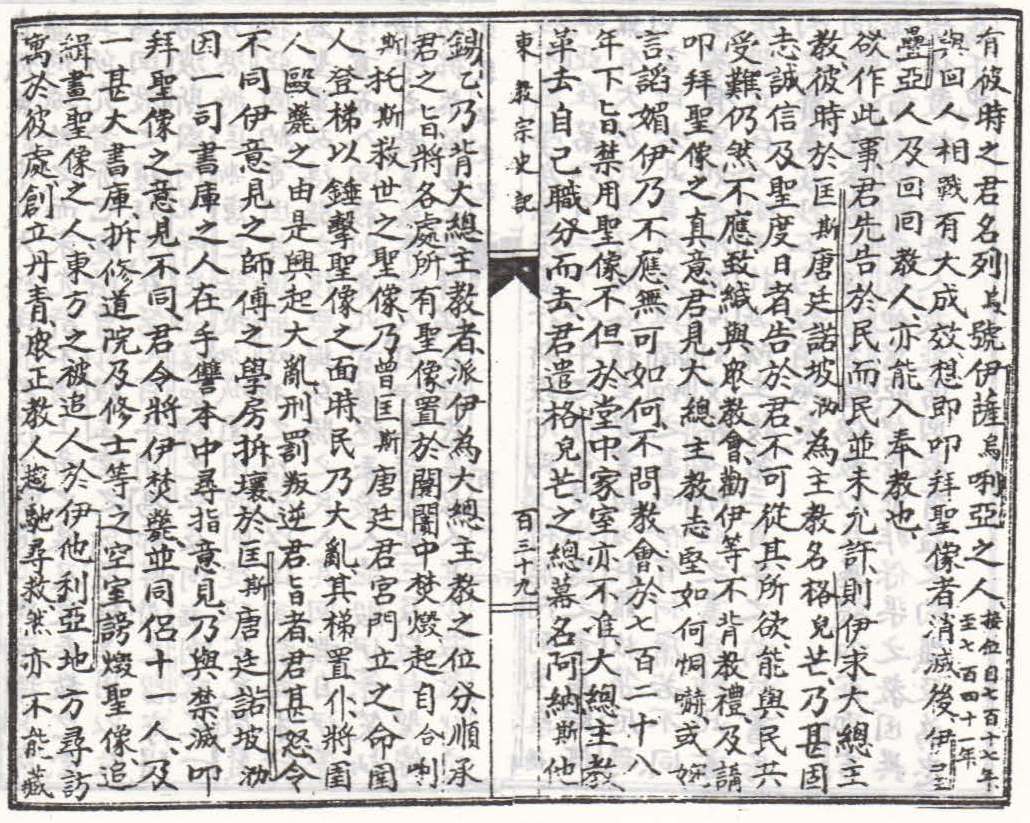 有彼時之君名列烏號伊薩烏唎亞之人接位自七百十七年至七百四十一年
與回人相戰有大成效想即叩拜聖像者消滅後伊
壘亞人及回回教人亦能入奉教也
欲作此事君先告於民而民並未允許則伊求大總主
教彼時於匡斯唐廷諾坡泐為主教名格兒芒乃甚固
志誠信及聖度日者告於君不可從其所欲能與民共
受難仍然不應致緘與眾教會勸伊等不背教禮及講
叩拜聖像之真意君見大總主教志堅如何恫嚇或婉
言諂媚伊乃不應無可如何不問教會於七百二十八
年下旨禁用聖像不但於堂中家室亦不准大總主教
革去自己職分而去君遣格兒芒之總幕名阿納斯他
東教宗史記
百三十九
錫乙乃背大總主教者派伊為大總主教之位分順承
君之旨將各處所有聖像置於闤闠中焚燬起自合唎
斯托斯救世之聖像乃曾匡斯唐廷君宮門立之命圉
人登梯以錘擊聖像之面時民乃大亂其梯置仆將圉
人毆斃之由是興起大亂刑罰叛逆君旨者君甚怒令
不同伊意見之師傅之學房拆壞於匡斯唐廷諾坡泐
因一司書庫之人在手讐本中尋指意見乃與禁滅叩
拜聖像之意見不同君令將伊焚斃並同侶十一人及
一甚大書庫拆修道院及修士等之空室謗燬聖像追
緝畫聖像之人東方之被追人於伊他利亞地方尋訪
寓於彼處創立丹青眾正教人趨馳尋救然亦不能藏